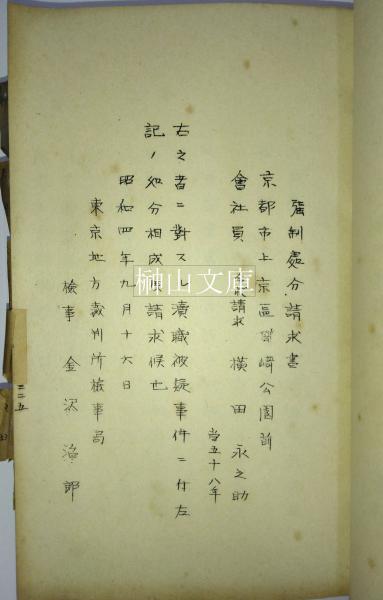 強制處分請求書
京都市上京區岡崎公園前
會社員 横田永之助
当五十八年
右之者ニ對スル瀆職被疑事件ニ付左
記ノ処分相成度請求候也
昭和四年九月十六日
東京地方裁判所檢事局
檢事 金沢 郎
榊山文庫
二二五